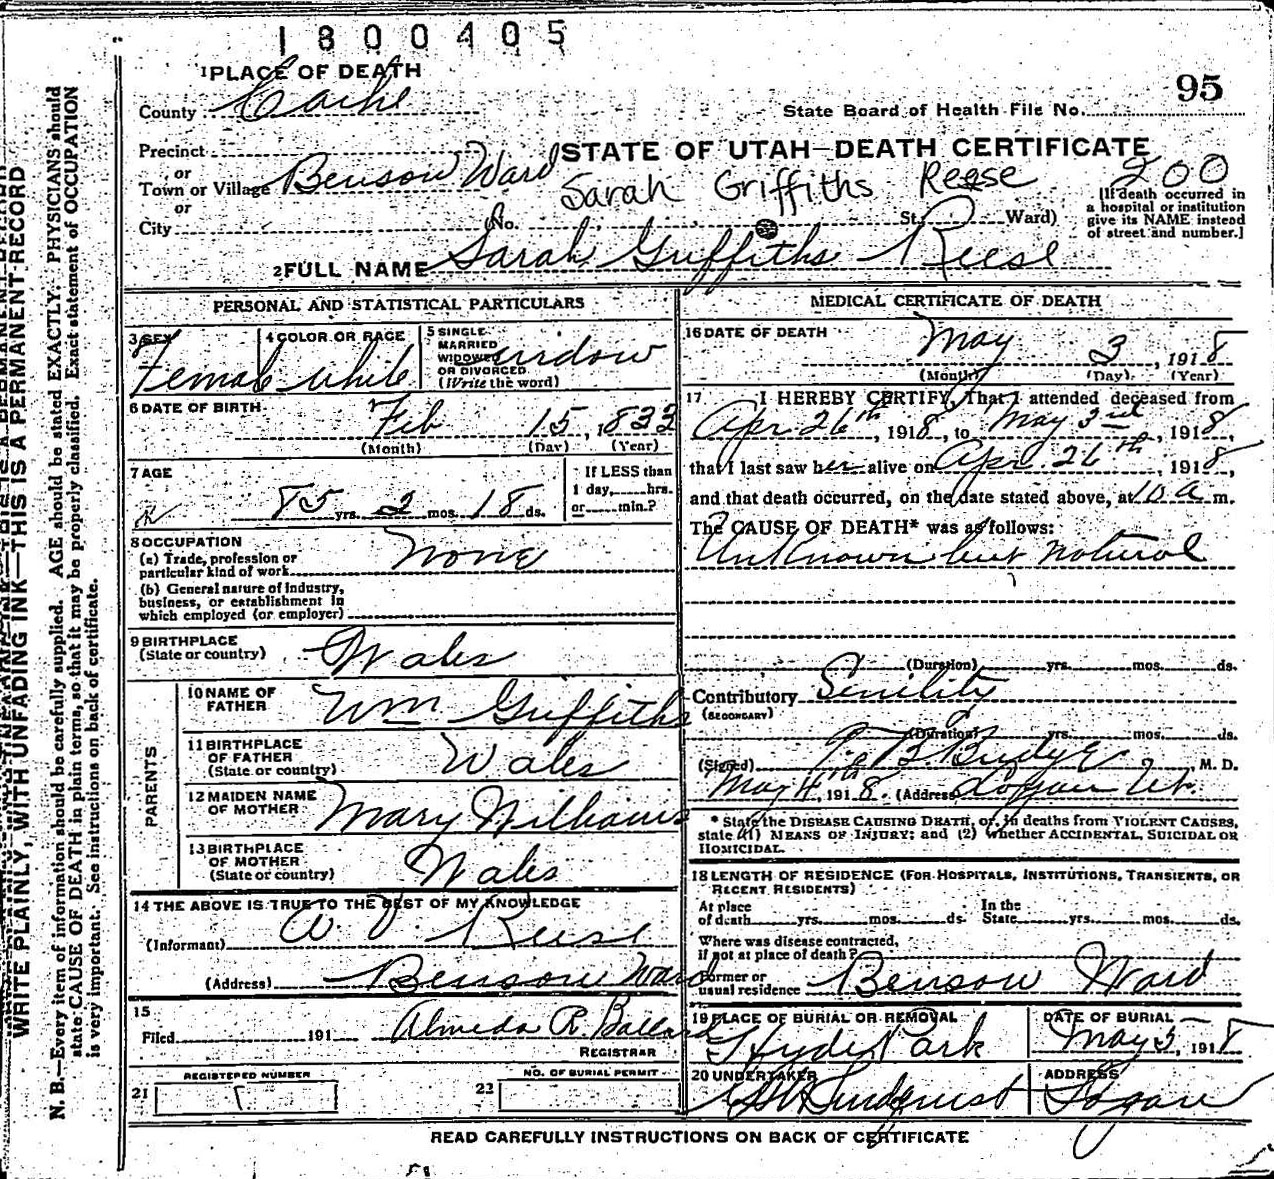 1800405
95
1 PLACE OF DEATH
County Cache
State Board of Health File No.
Precinct
or
Town or Village Benson Ward
STATE OF UTAH—DEATH CERTIFICATE
200
Sarah Griffiths Reese
or
City
(No. St. Ward)
[If death occurred in
a hospital or institution
give its NAME instead
of street and number.]
2 FULL NAME Sarah Griffiths Reese
PERSONAL AND STATISTICAL PARTICULARS
3 SEX
Female
4 COLOR OR RACE
white
5 SINGLE
MARRIED
WIDOWED
OR DIVORCED
(Write the word)
widow
6 DATE OF BIRTH
Feb 15, 1833
(Month) (Day) (Year)
7 AGE
85 yrs. 2 mos. 18 ds.
If LESS than
1 day, hrs.
or min.?
8 OCCUPATION
(a) Trade, profession or
particular kind of work
None
(b) General nature of industry,
business, or establishment in
which employed (or employer)
9 BIRTHPLACE
(State or country)
Wales
PARENTS
10 NAME OF
FATHER
Wm Griffiths
11 BIRTHPLACE
OF FATHER
(State or country)
Wales
12 MAIDEN NAME
OF MOTHER
Mary Williams
13 BIRTHPLACE
OF MOTHER
(State or country)
Wales
14 THE ABOVE IS TRUE TO THE BEST OF MY KNOWLEDGE
(Informant) Reese
(Address) Benson Ward
15
Filed 191 Almeda R. Ballard
REGISTRAR
REGISTERED NUMBER
21
NO. OF BURIAL PERMIT
22
MEDICAL CERTIFICATE OF DEATH
16 DATE OF DEATH
May 3, 1918
(Month) (Day) (Year)
17 I HEREBY CERTIFY, That I attended deceased from
Apr 26th, 1918, to May 3rd, 1918,
that I last saw her alive on Apr. 26th, 1918,
and that death occurred, on the date stated above, at 10 a m.
The CAUSE OF DEATH* was as follows:
Unknown but natural
(Duration) yrs. mos. ds.
Contributory Senility
(SECONDARY)
(Duration) yrs. mos. ds.
(Signed) B. Budge, M. D.
May 4th, 1918. (Address) Logan Ut.
* State the DISEASE CAUSING DEATH, or, in deaths from VIOLENT CAUSES,
state (1) MEANS OF INJURY; and (2) whether ACCIDENTAL, SUICIDAL OR
HOMICIDAL.
18 LENGTH OF RESIDENCE (FOR HOSPITALS, INSTITUTIONS, TRANSIENTS, OR
RECENT RESIDENTS)
At place
of death yrs. mos. ds.
In the
State yrs. mos. ds.
Where was disease contracted,
if not at place of death?
Former or
usual residence Benson Ward
19 PLACE OF BURIAL OR REMOVAL
Hyde Park
DATE OF BURIAL
May 5, 1918
20 UNDERTAKER
Lindquist
ADDRESS
Logan
READ CAREFULLY INSTRUCTIONS ON BACK OF CERTIFICATE
WRITE PLAINLY, WITH UNFADING INK—THIS IS A PERMANENT RECORD
N. B.—Every item of information should be carefully supplied. AGE should be stated EXACTLY. PHYSICIANS should
state CAUSE OF DEATH in plain terms, so that it may be properly classified. Exact statement of OCCUPATION
is very important. See instructions on back of certificate.